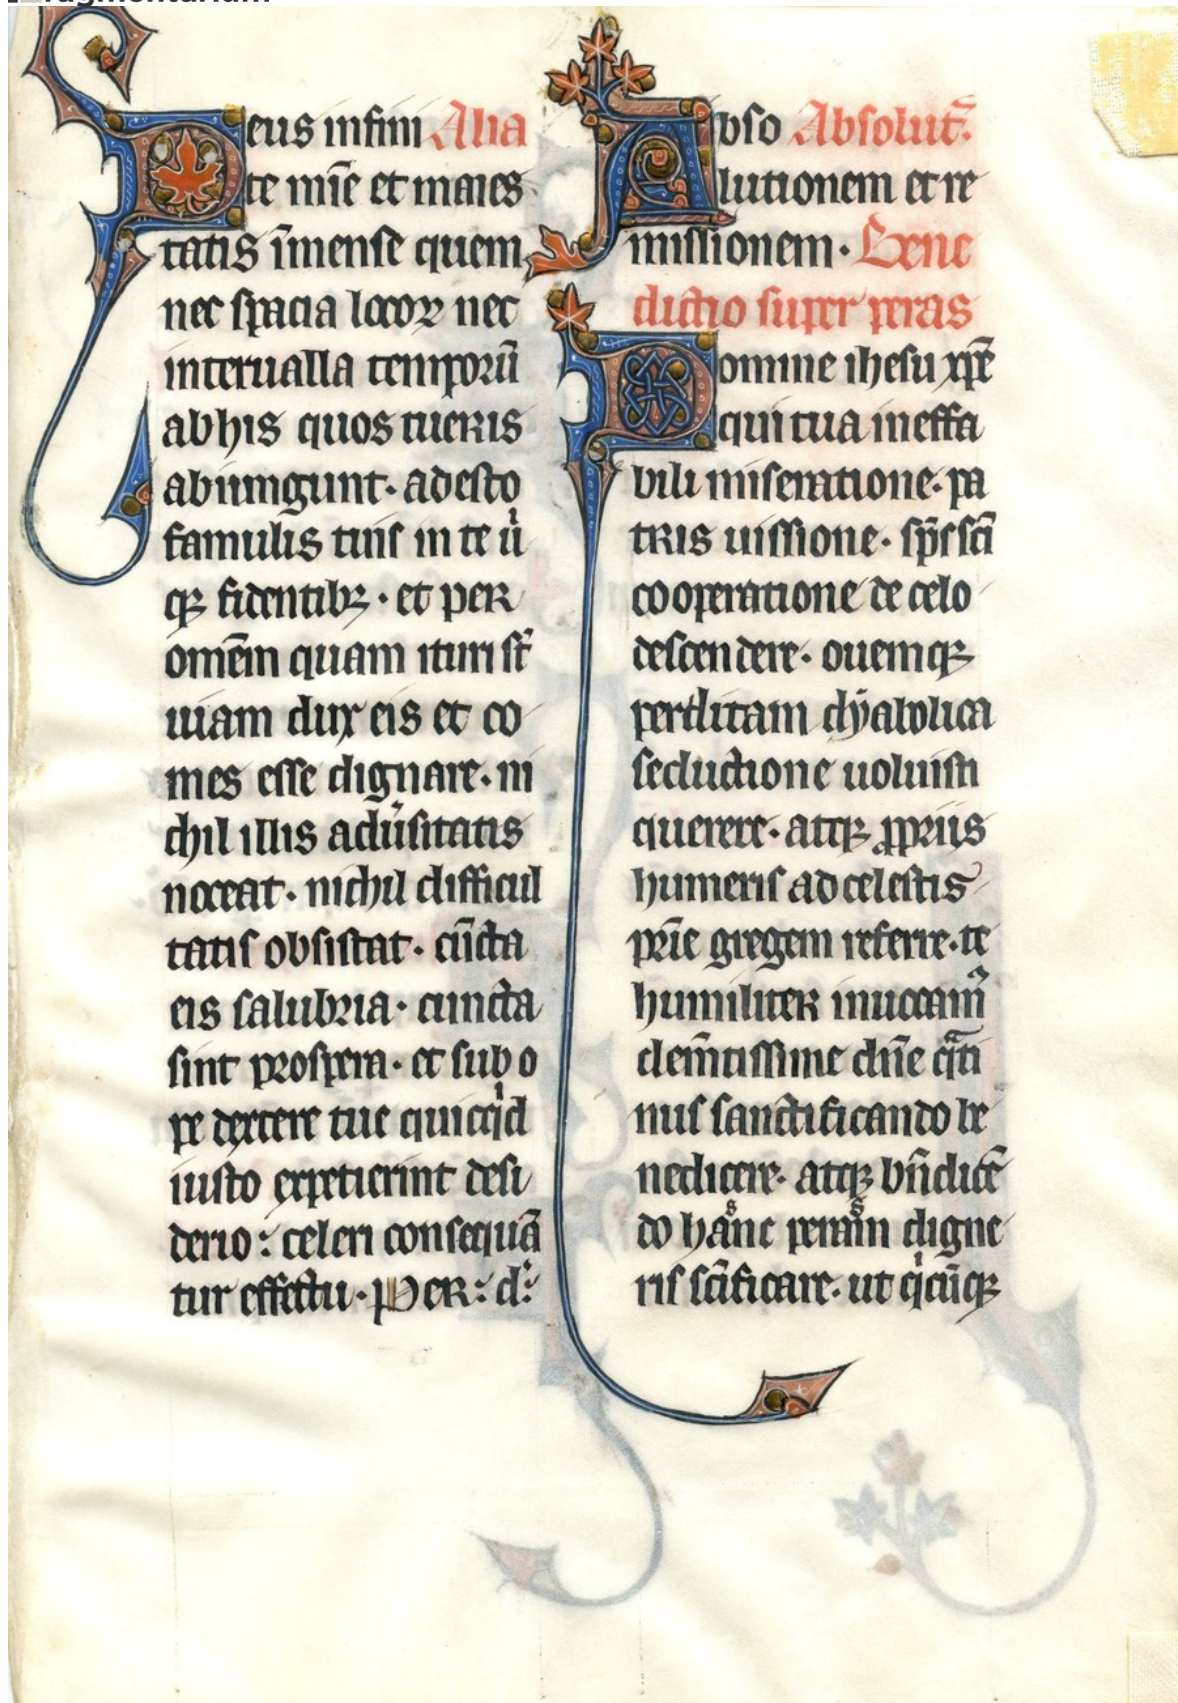 Deus infini Alia
te mīe et maies
tatis īmense quem
nec spacia locoꝝ nec
interualla temporū
ab his quos tueris
abiungunt· adesto
famulis tuis in te ubi
qꝫ fidentibꝫ· et per
omēm quam ituri st̄
uiam dux eis et co
mes esse dignare· ni
chil illis adu͛sitatis
noceat· nichil difficul
tatis obsistat· cūcta
eis salubria· cuncta
sint prospera· et sub o
pe dextere tue quicqͥd
iusto expetierint desi
derio: celeri consequā
tur effectu· Per: d:
Abso Absolut̄:
lutionem et re
missionem· Bene
dictio super peras
Domine ihesu xp̄e
qui tua ineffa
bili miseratione· pa
tris uissione· sp̄s sc̄i
cooperatione de celo
descendere· ouemqꝫ
perditam dyabolica
seductione uoluisti
querere· atqꝫ ꝓpriis
humeris ad celestis
pr̄ie gregem referre· te
humiliter inuocam᷒
clem̄tissime dn̄e qᷓti
nus sanctificando be
nedicere· atqꝫ bn̄dicē
do hanͨ peram digne
ris sc̄ificare· ut qͥcūqꝫ